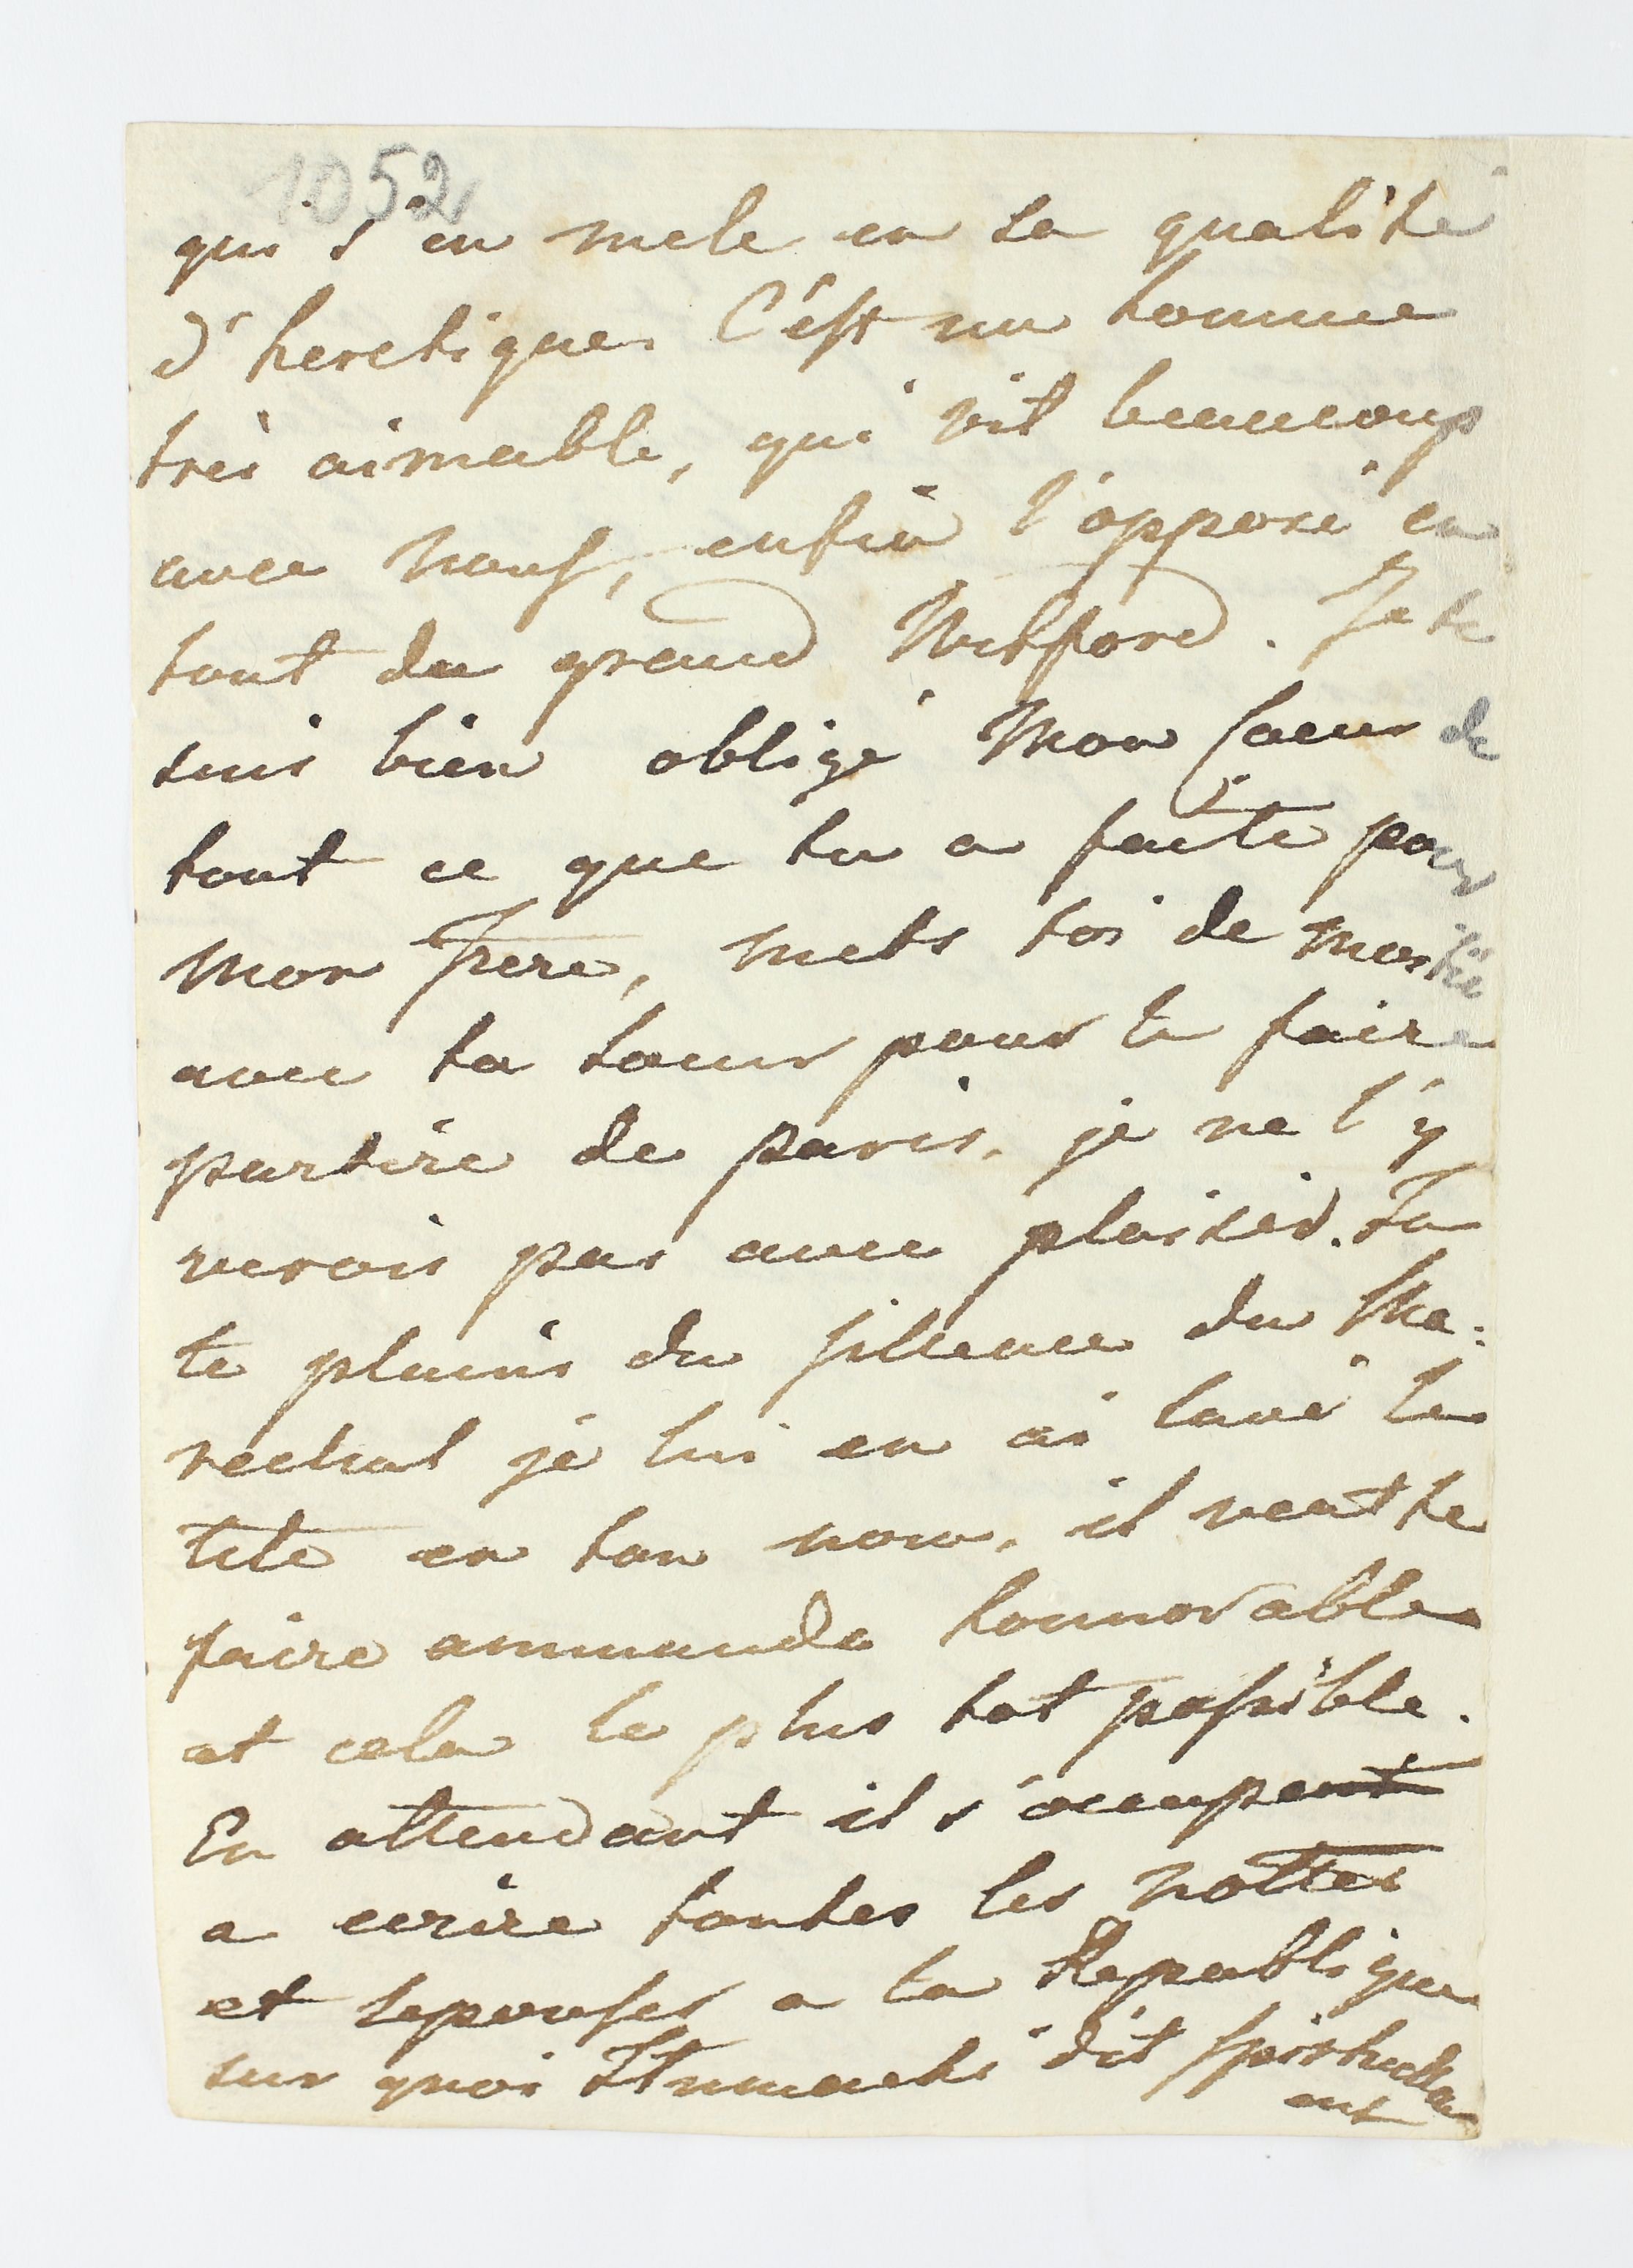 1052
qui s'en mele en sa qualité
d'heretique. C'est un homme
très aimable, qui vit beaucoup
avec nous, enfin l'opposé en
tout du grand Witford. Je te
suis bien obligé Mon Coeur de
tout ce que tu a faite pour
mon Frere, mets toi de moitié
avec ta soeur pour le faire
partire de paris, je ne l'y
verois pas avec plaisir. Tu
te plains du sillence du Ma:
rechal je lui en ai lavé la
tete en ton nom, il veut te
faire ammande honnorable
et cela le plus tot possible.
En attendant il s'occupent
a ecrire toutes les nottes
et reponses a la Republique
sur quoi dit spirituellem
ent